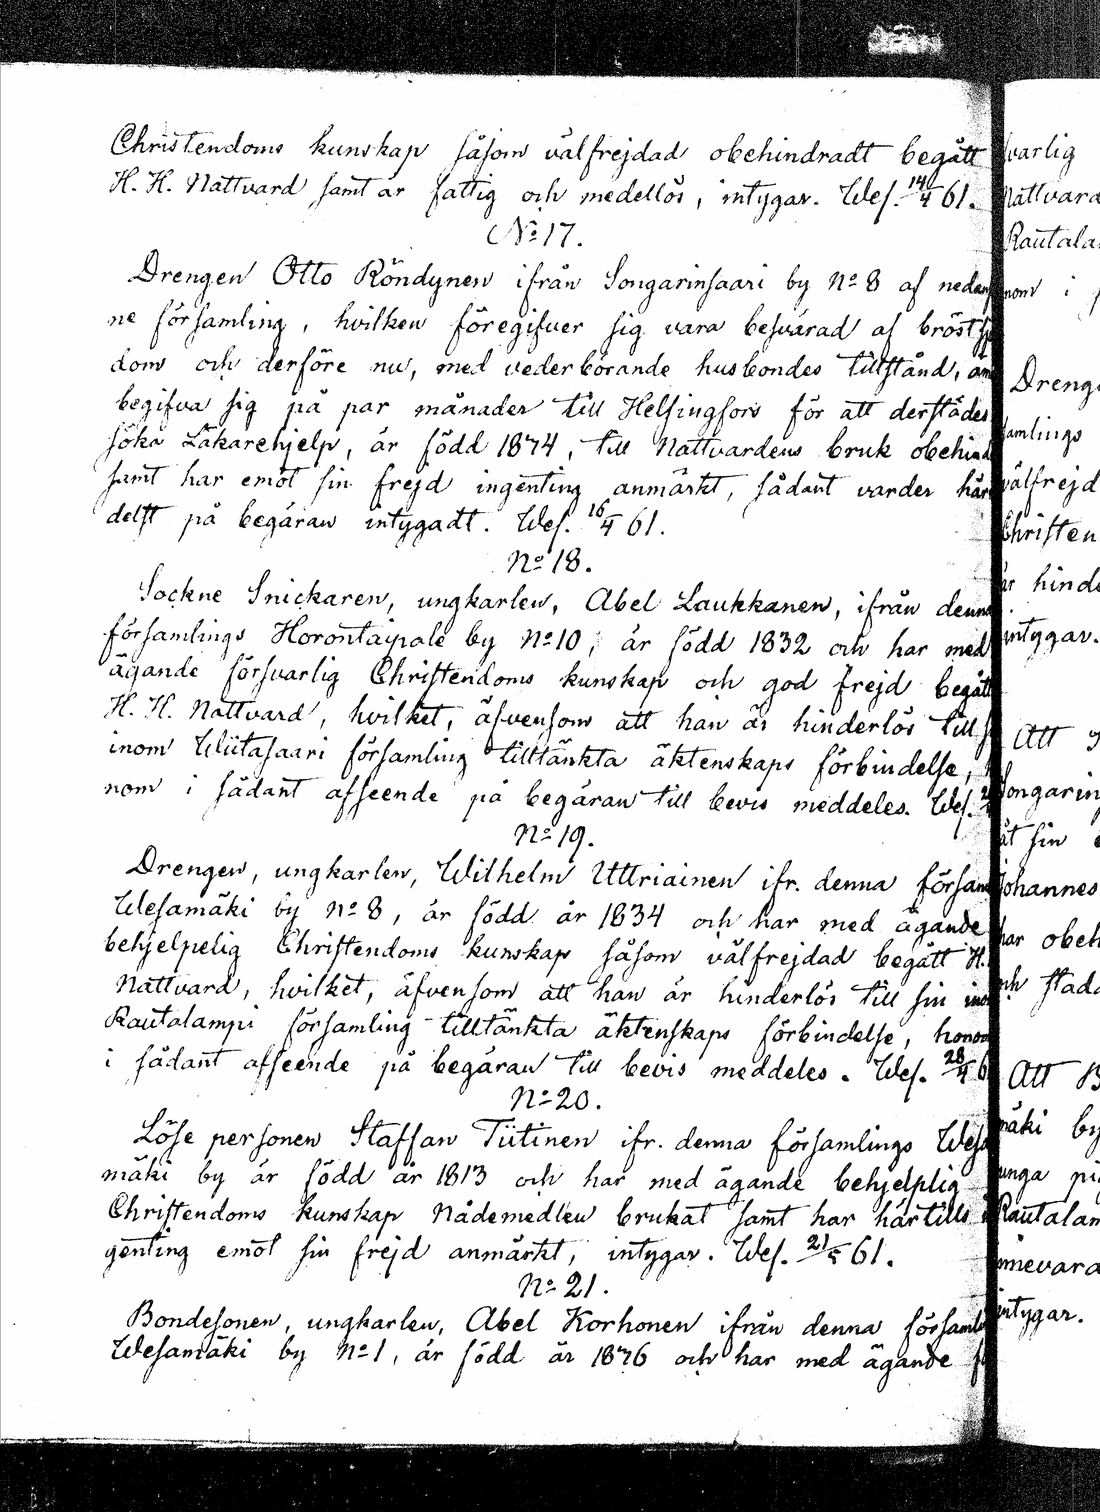 Christendoms kunskap såsom välfrejdad obehindradt begått
H. H. Nattvard samt är fattig och medellös, intygar. Wes. 14/4 61.
No 17.
Drengen Otto Röndynen ifrån Songarinsaari by No 8 af nedan
ne församling, hvilken föregifver sig vara besvärad af bröst
dom och derföre nu, med vederbörande husbondes tillstånd,
begifva sig på par månader till Helsingfors för att derstädes
söka Läkarehjelp, är född 1874, till Nattvardens bruk obehind
samt har emot sin frejd ingenting anmärkt, sådant varder här
delst på begäran intygadt. Wes. 16/4 61.
No 18.
Sockne Snickaren, ungkarlen, Abel Laukkanen, ifrån denna
församlings Horontaipale by No 10, är född 1832 och har med
ägande försvarlig Christendoms kunskap och god frejd begått
H. H. Nattvard, hvilket, äfvensom att han är hinderlös till
inom Wiitasaari församling tilltänkta äktenskaps förbindelse,
nom i sådant afseende på begäran till bevis meddeles. Wes.
No 19.
Drengen, ungkarlen, Wilhelm Uttriainen ifr. denna försam
Wesamäki by No 8, är född år 1834 och har med ägande
behjelpelig Christendoms kunskap såsom välfrejdad begått H.
Nattvard, hvilket, äfvensom att han är hinderlös till sin inom
Rautalampi församling tilltänkta äktenskaps förbindelse, honom
i sådant afseende på begäran till bevis meddeles. Wes. 28/4 6
No 20.
Löse personen Staffan Tiitinen ifr. denna församlings Wesa
mäki by är född år 1813 och har med ägande behjelplig
Christendoms kunskap Nådemedlen brukat samt har härtills
genting emot sin frejd anmärkt, intygar. Wes. 21/5 61.
No 21.
Bondesonen, ungkarlen, Abel Korhonen ifrån denna församl
Wesamäki by No 1, är född år 1876 och har med ägande
varlig
Nattvard
Rautala
nom i
Drenge
samlings
välfrejd
Christen
är hinde
intygar.
Att
Songarin
åt sin
Johannes
har obeh
och stad
Att B
mäki by
unga pi
Rautalam
nnevara
intygar.